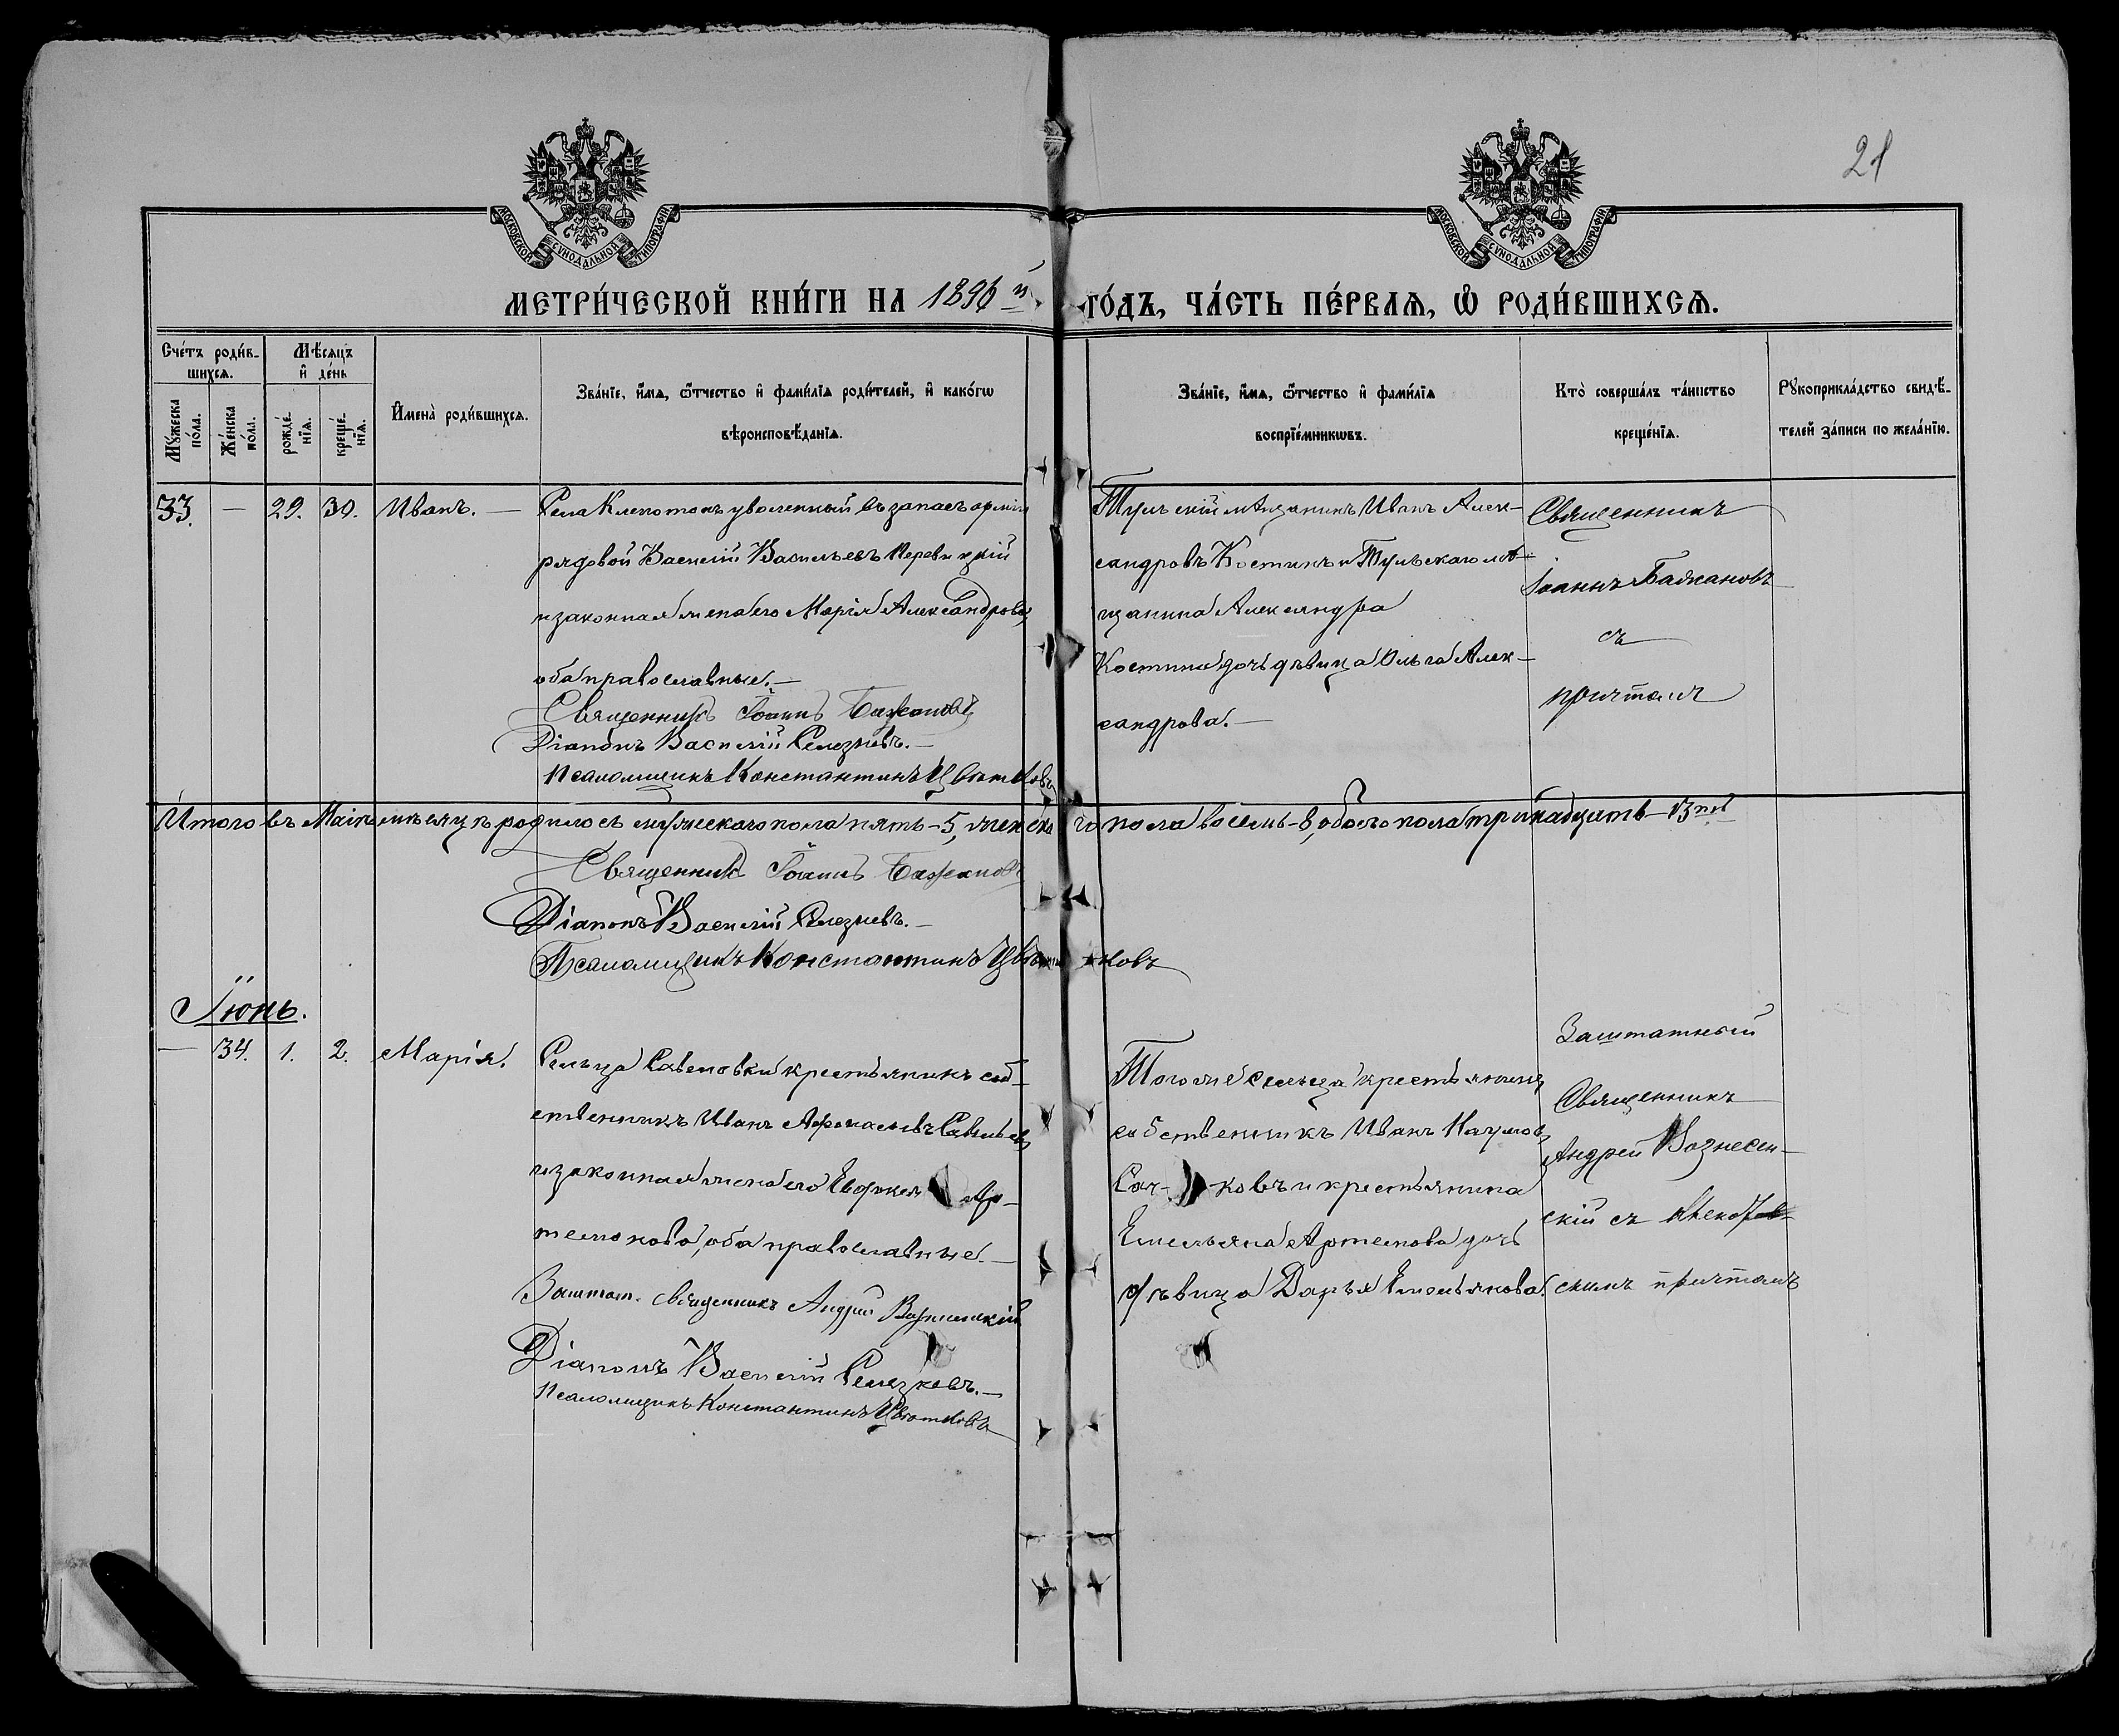 21
МОСКОВСКОЙ СѴНОДАЛЬНОЙ ТИПОГРАФІИ
МОСКОВСКОЙ СѴНОДАЛЬНОЙ ТИПОГРАФІИ
МЕТРИ́ЧЕСКОЙ КНИ́ГИ НА 1896й ГО́ДЪ, ЧА́СТЬ ПЕ́РВАѦ, Ѡ҆ РОДИ́ВШИХСѦ.
Сче́тъ роди́в-
шихсѧ.
Мꙋ́жеска по́ла.
Же́нска по́ла.
Мѣ́сѧцъ
и҆ де́нь
рожде́-
нїѧ.
креще́-
нїѧ.
И҆мена̀ роди́вшихсѧ.
Зва́нїе, и҆́мѧ, ѻ҆́тчество и҆ фами́лїѧ роди́телей, и҆ како́гѡ
вѣроисповѣ́данїѧ.
Зва́нїе, и҆́мѧ, ѻ҆́тчество и҆ фами́лїѧ
воспрїе́мникѡвъ.
Кто̀ соверша́лъ та́инство
креще́нїѧ.
Рꙋкоприкла́дство свидѣ́-
телей за́писи по жела́нїю.
33. — 29. 30. Иванъ. —
Села Клекотокъ уволенный въ запасъ арміи
рядовой Василій Васильевъ Перевицкій
и законная жена его Марія Александрова,
оба православные. —
Священникъ Іоаннъ Бажановъ
Діаконъ Василій Селезневъ. —
Псаломщикъ Константинъ Цвѣтковъ
Тульскій мѣщанинъ Иванъ Алек-
сандровъ Костинъ и Тульскаго мѣ-
щанина Александра
Костина дочь дѣвица Ольга Алек-
сандрова. —
Священникъ
Іоаннъ Бажановъ
съ
причтомъ
Итого въ Маѣ мѣсяцѣ родилось мужескаго пола пять - 5, женскаго пола восемь - 8, обоего пола тринадцать - 13ть
Священникъ Іоаннъ Бажановъ
Діаконъ Василій Селезневъ. —
Псаломщикъ Константинъ Цвѣтковъ
Іюнь.
— 34. 1. 2. Марія.
Сельца Савеловки крестьянинъ соб-
ственникъ Иванъ Афонасьевъ Савельевъ
и законная жена его Ар-
темонова, оба православные. —
Заштат. священникъ Андрей Вознесенскій
Діаконъ Василій Селезневъ. —
Псаломщикъ Константинъ Цвѣтковъ
Того же сельца крестьянинъ
собственникъ Иванъ Наумовъ
и крестьянина
Емельяна Артемова дочь
дѣвица Дарья Емельянова.
Заштатный
Священникъ
Андрей Вознесен-
скій съ
причтомъ